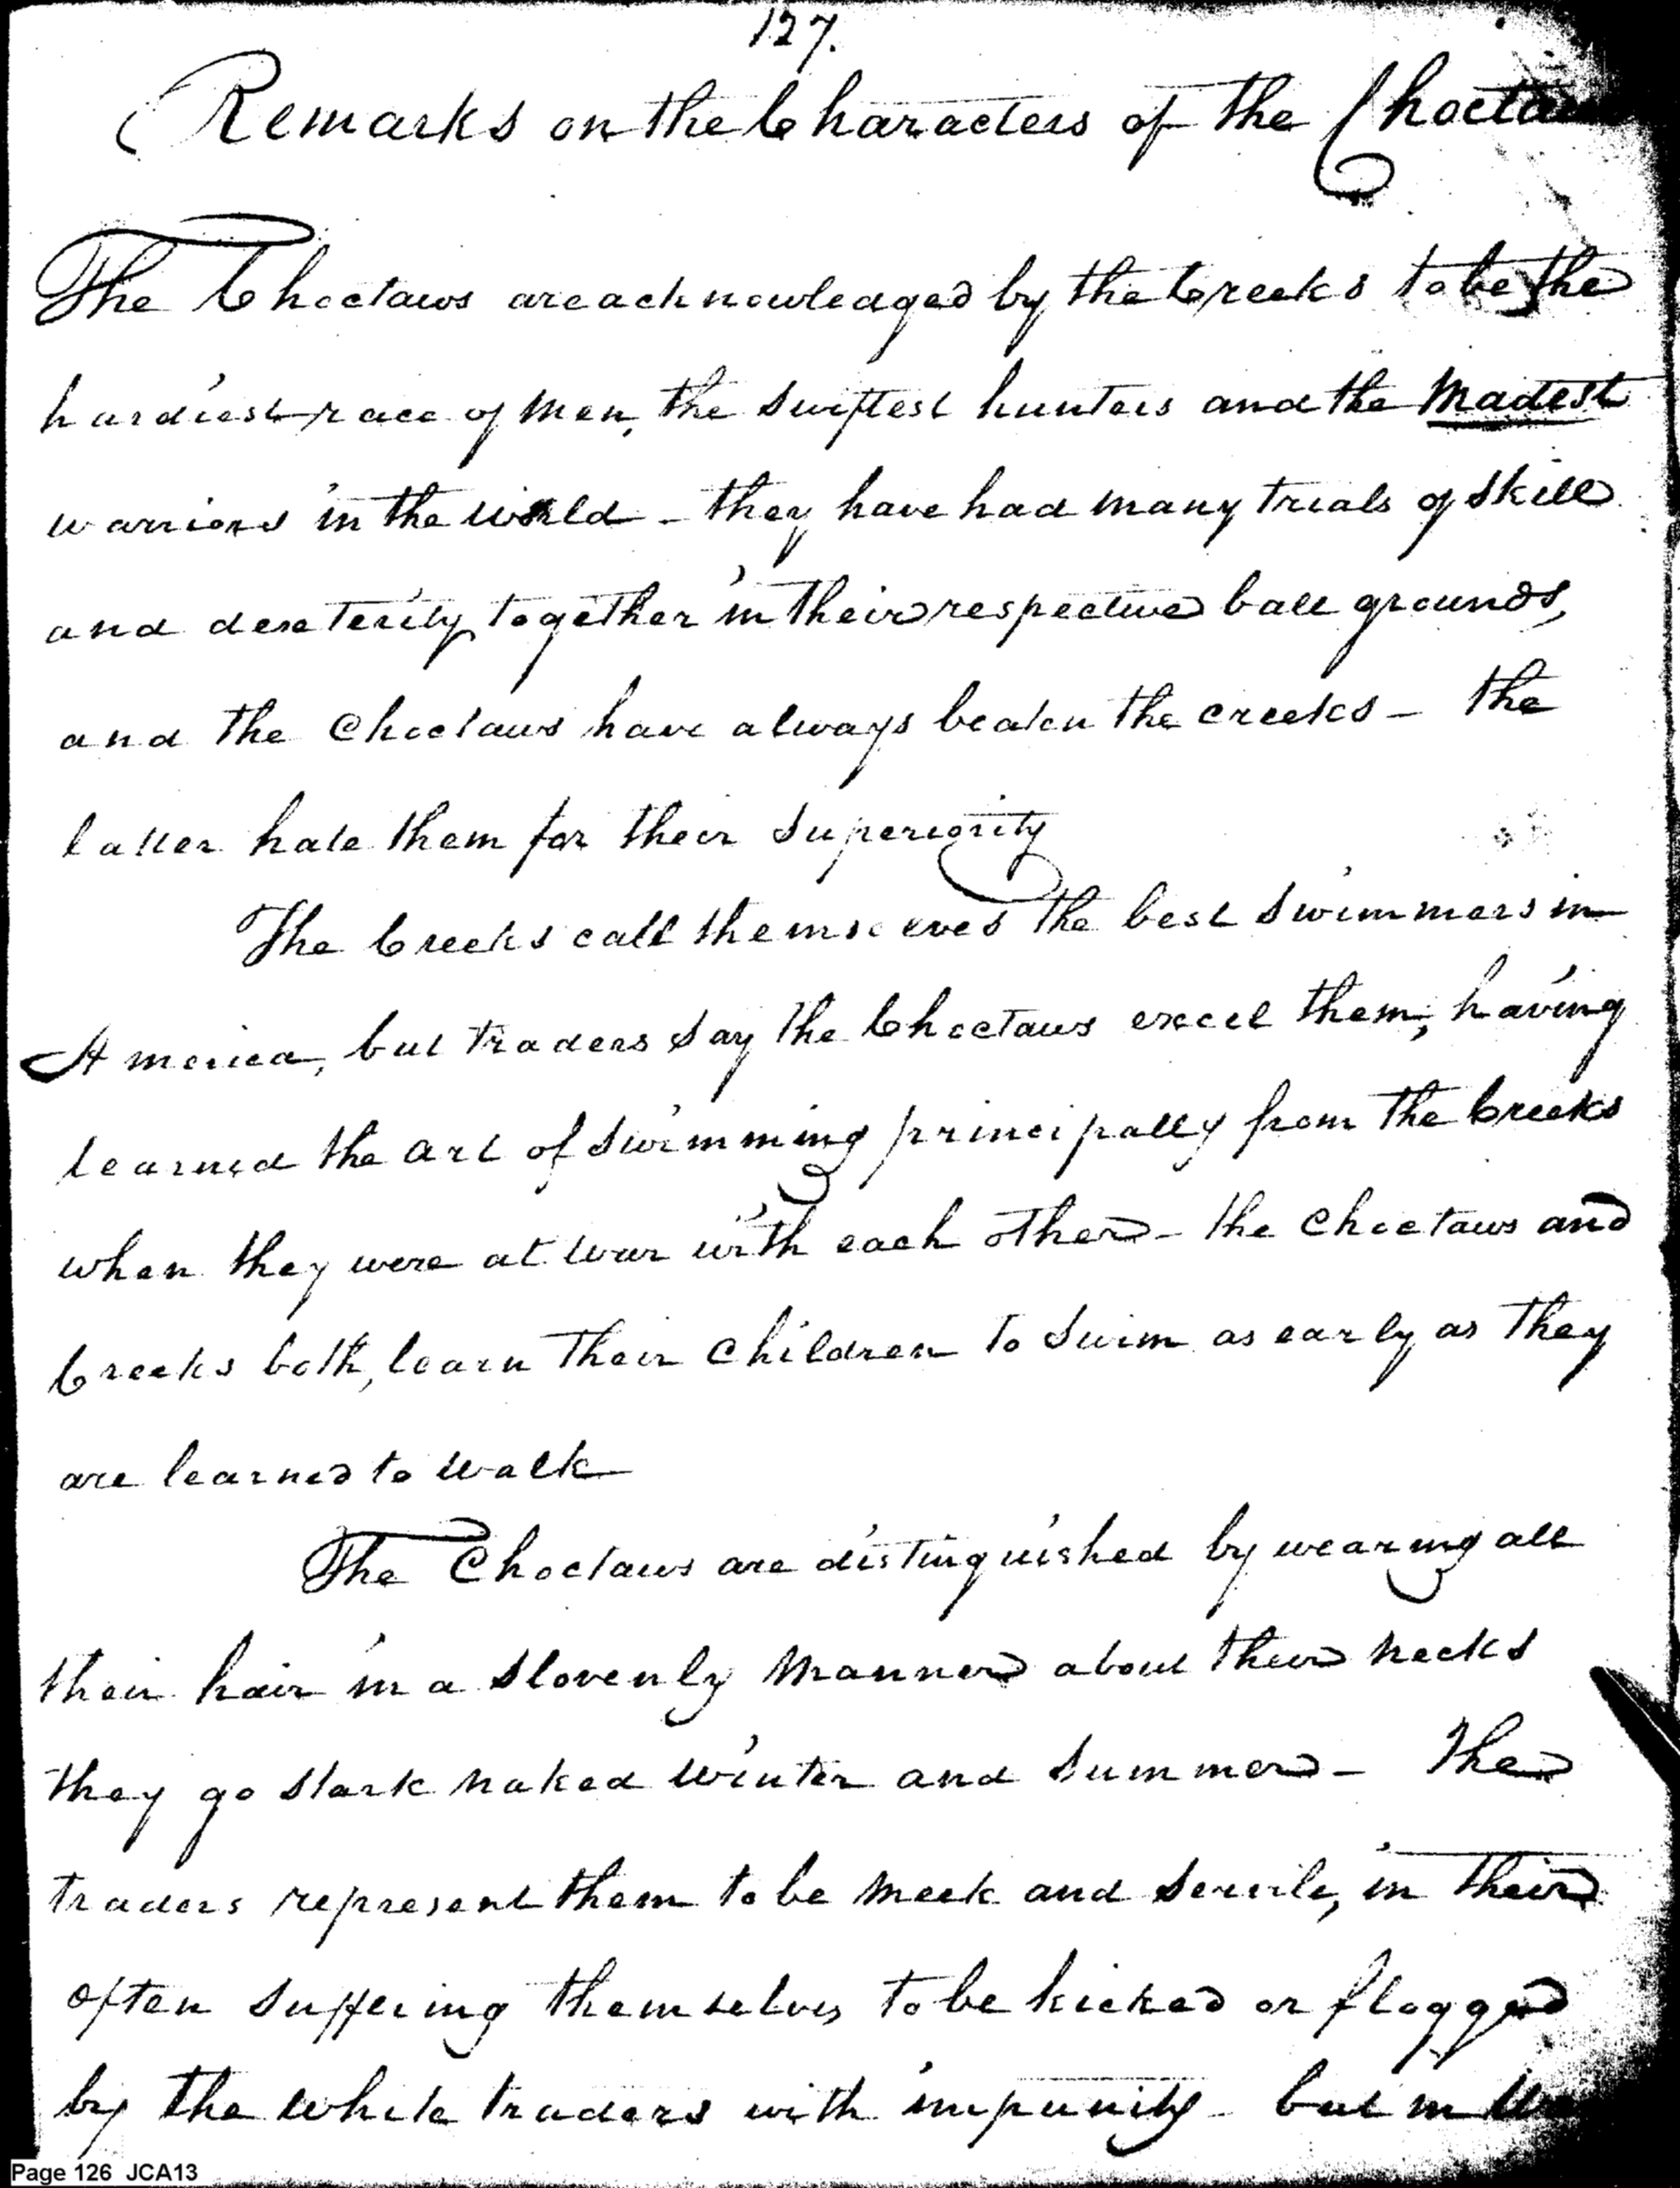 127.
Remarks on the Characters of the Choctaws
The Choctaws are acknowledged by the Creeks to be the
hardiest race of men, the swiftest hunters and the Madest
warriors in the world - they have had many trials of skill
and dexterity together in their respective ball grounds,
and the Choctaws have always beaten the creeks - the
latter hate them for their superiority
The Creeks call themselves the best swimmers in
America, but traders say the Choctaws excel them, having
learned the art of swimming principally from the Creeks
when they were at war with each other - the Choctaws and
Creeks both, learn their children to swim as early as they
are learned to walk
The Choctaws are distinguished by wearing all
their hair in a slovenly manner about their necks
they go stark naked winter and summer - The
traders represent them to be meek and servile, in their
often suffering themselves to be kicked or flogged
by the white traders with impunity - but in
Page 126 JCA13